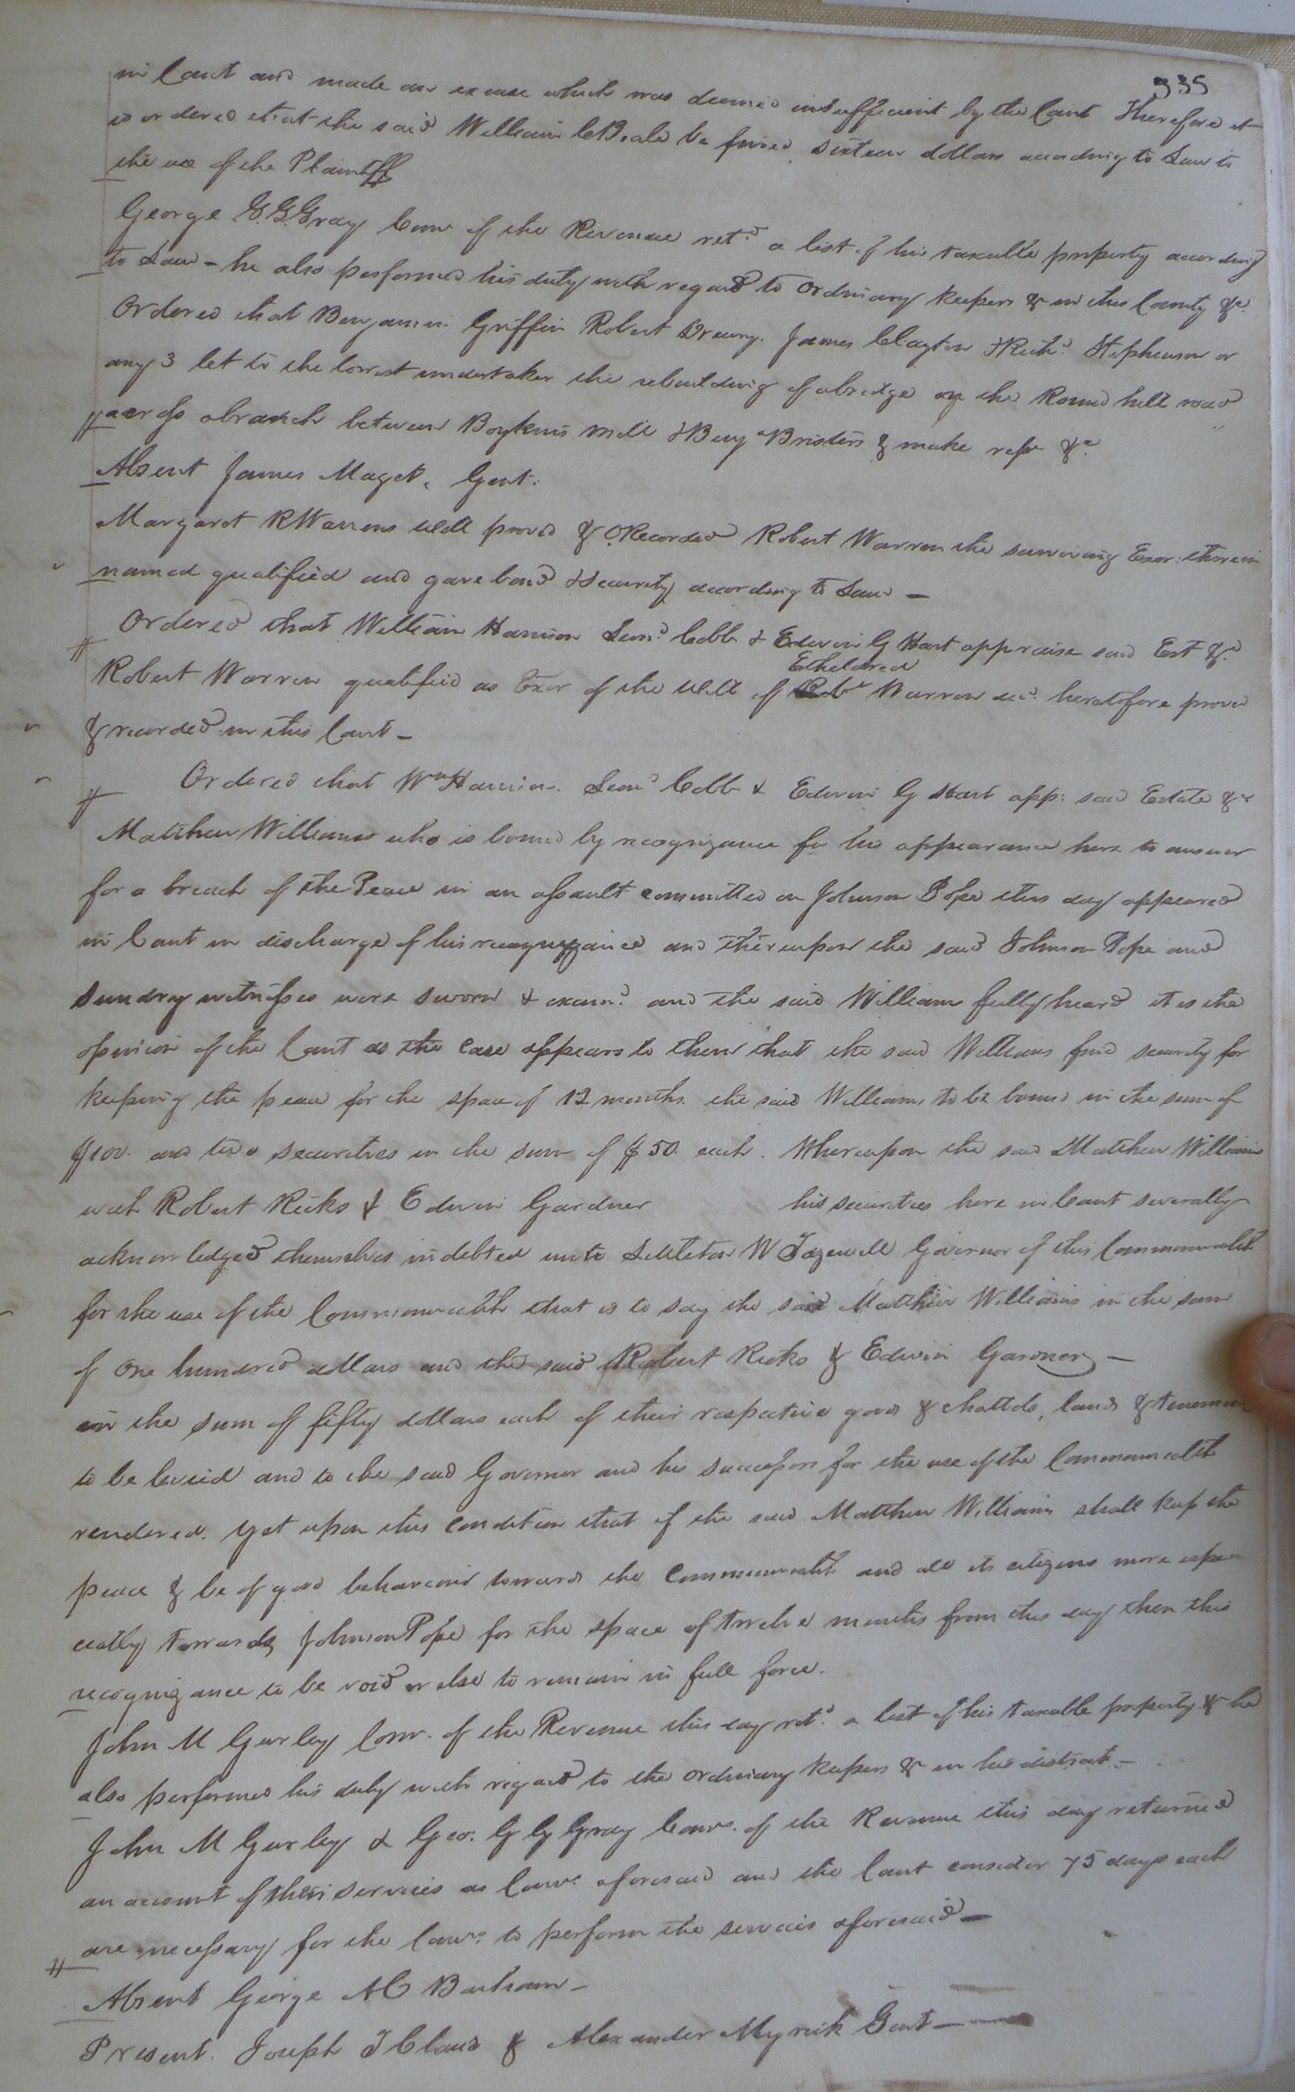 335
in Court and made an excuse which was deemed insufficient by the Court Therefore it
is ordered that the said William C Beale be fined sixteen dollars according to Law to
the use of the Plaintiff
George G. G. Gray Comr of the Revenue retd a list of his taxable property according
to Law – he also performed his duty with regard to Ordinary keepers & in this County &c.
Ordered that Benjamin Griffin Robert Drewry. James Clayton & Richd Stephenson or
any 3 let to the lowest undertaker the rebuilding of a bridge on the Round hill road
across a branch between Boykins mill & Benja Bristers & make repo &c.
Absent James Maget, Gent.
Margaret R Warrens Will proved & O. Recorded Robert Warren the surviving Exor therein
named qualified and gave bond & Security according to Law –
Ordered that William Harrison Saml Cobb & Edwin G Hart appraise said Est &c.
Etheldred
Robert Warren qualified as Exor of the Will of Warren decd heretofore proved
& recorded in this Court –
Ordered that Wm Harrison. Saml Cobb & Edwin G Hart app: said Estate &c
Matthew Williams who is bound by recognizance for his appearance here to answer
for a breach of the Peace in an assault committed on Johnson Pope this day appeared
in Court in discharge of his recognizance and thereupon the said Johnson Pope and
Sundry witnesses were sworn & examd and the said William fully heard it is the
opinion of the Court as the case appears to them that the said Williams find security for
keeping the peace for the space of 12 months the said Williams to be bound in the sum of
$100. and two securities in the sum of $50 each. Whereupon the said Matthew Williams
with Robert Ricks & Edwin Gardner his securities here in Court severally
acknowledged themselves indebted unto Littleton W Tazewell Governor of this Commonwealth
for the use of the Commonwealth that is to say the said Matthew Williams in the sum
of One hundred dollars and the said Robert Ricks & Edwin Gardner –
in the sum of fifty dollars each of their respective goods & chattels, lands &
to be levied and to the said Governor and his successors for the use of the Commonwealth
rendered. Yet upon this condition that if the said Matthew Williams shall keep the
peace & be of good behaviour towards the Commonwealth and all its citizens more espe
cially towards Johnson Pope for the space of twelve months from this day then this
recognizance to be void or else to remain in full force.
John M Gurley Comr. of the Revenue this day retd. a list of his taxable property & he
also performed his duty with regard to the ordinary keepers & in his district –
John M Gurley & Geo: G G Gray Comrs. of the Revenue this day returned
an account of their services as Comrs aforesaid and the Court consider 75 days each
are necessary for the Comrs to perform the services aforesaid –
Absent George A C Barham –
Present. Joseph T Claud & Alexander Myrick Gent –